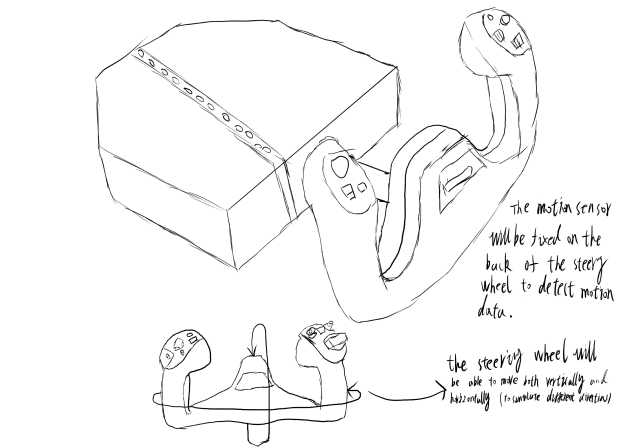 The motion sensor
will be fixed on the
back of the steery
wheel to detect motion
data.
the steeriy wheel will
be able to move both vertically and
horizontally (to simulate different directions)